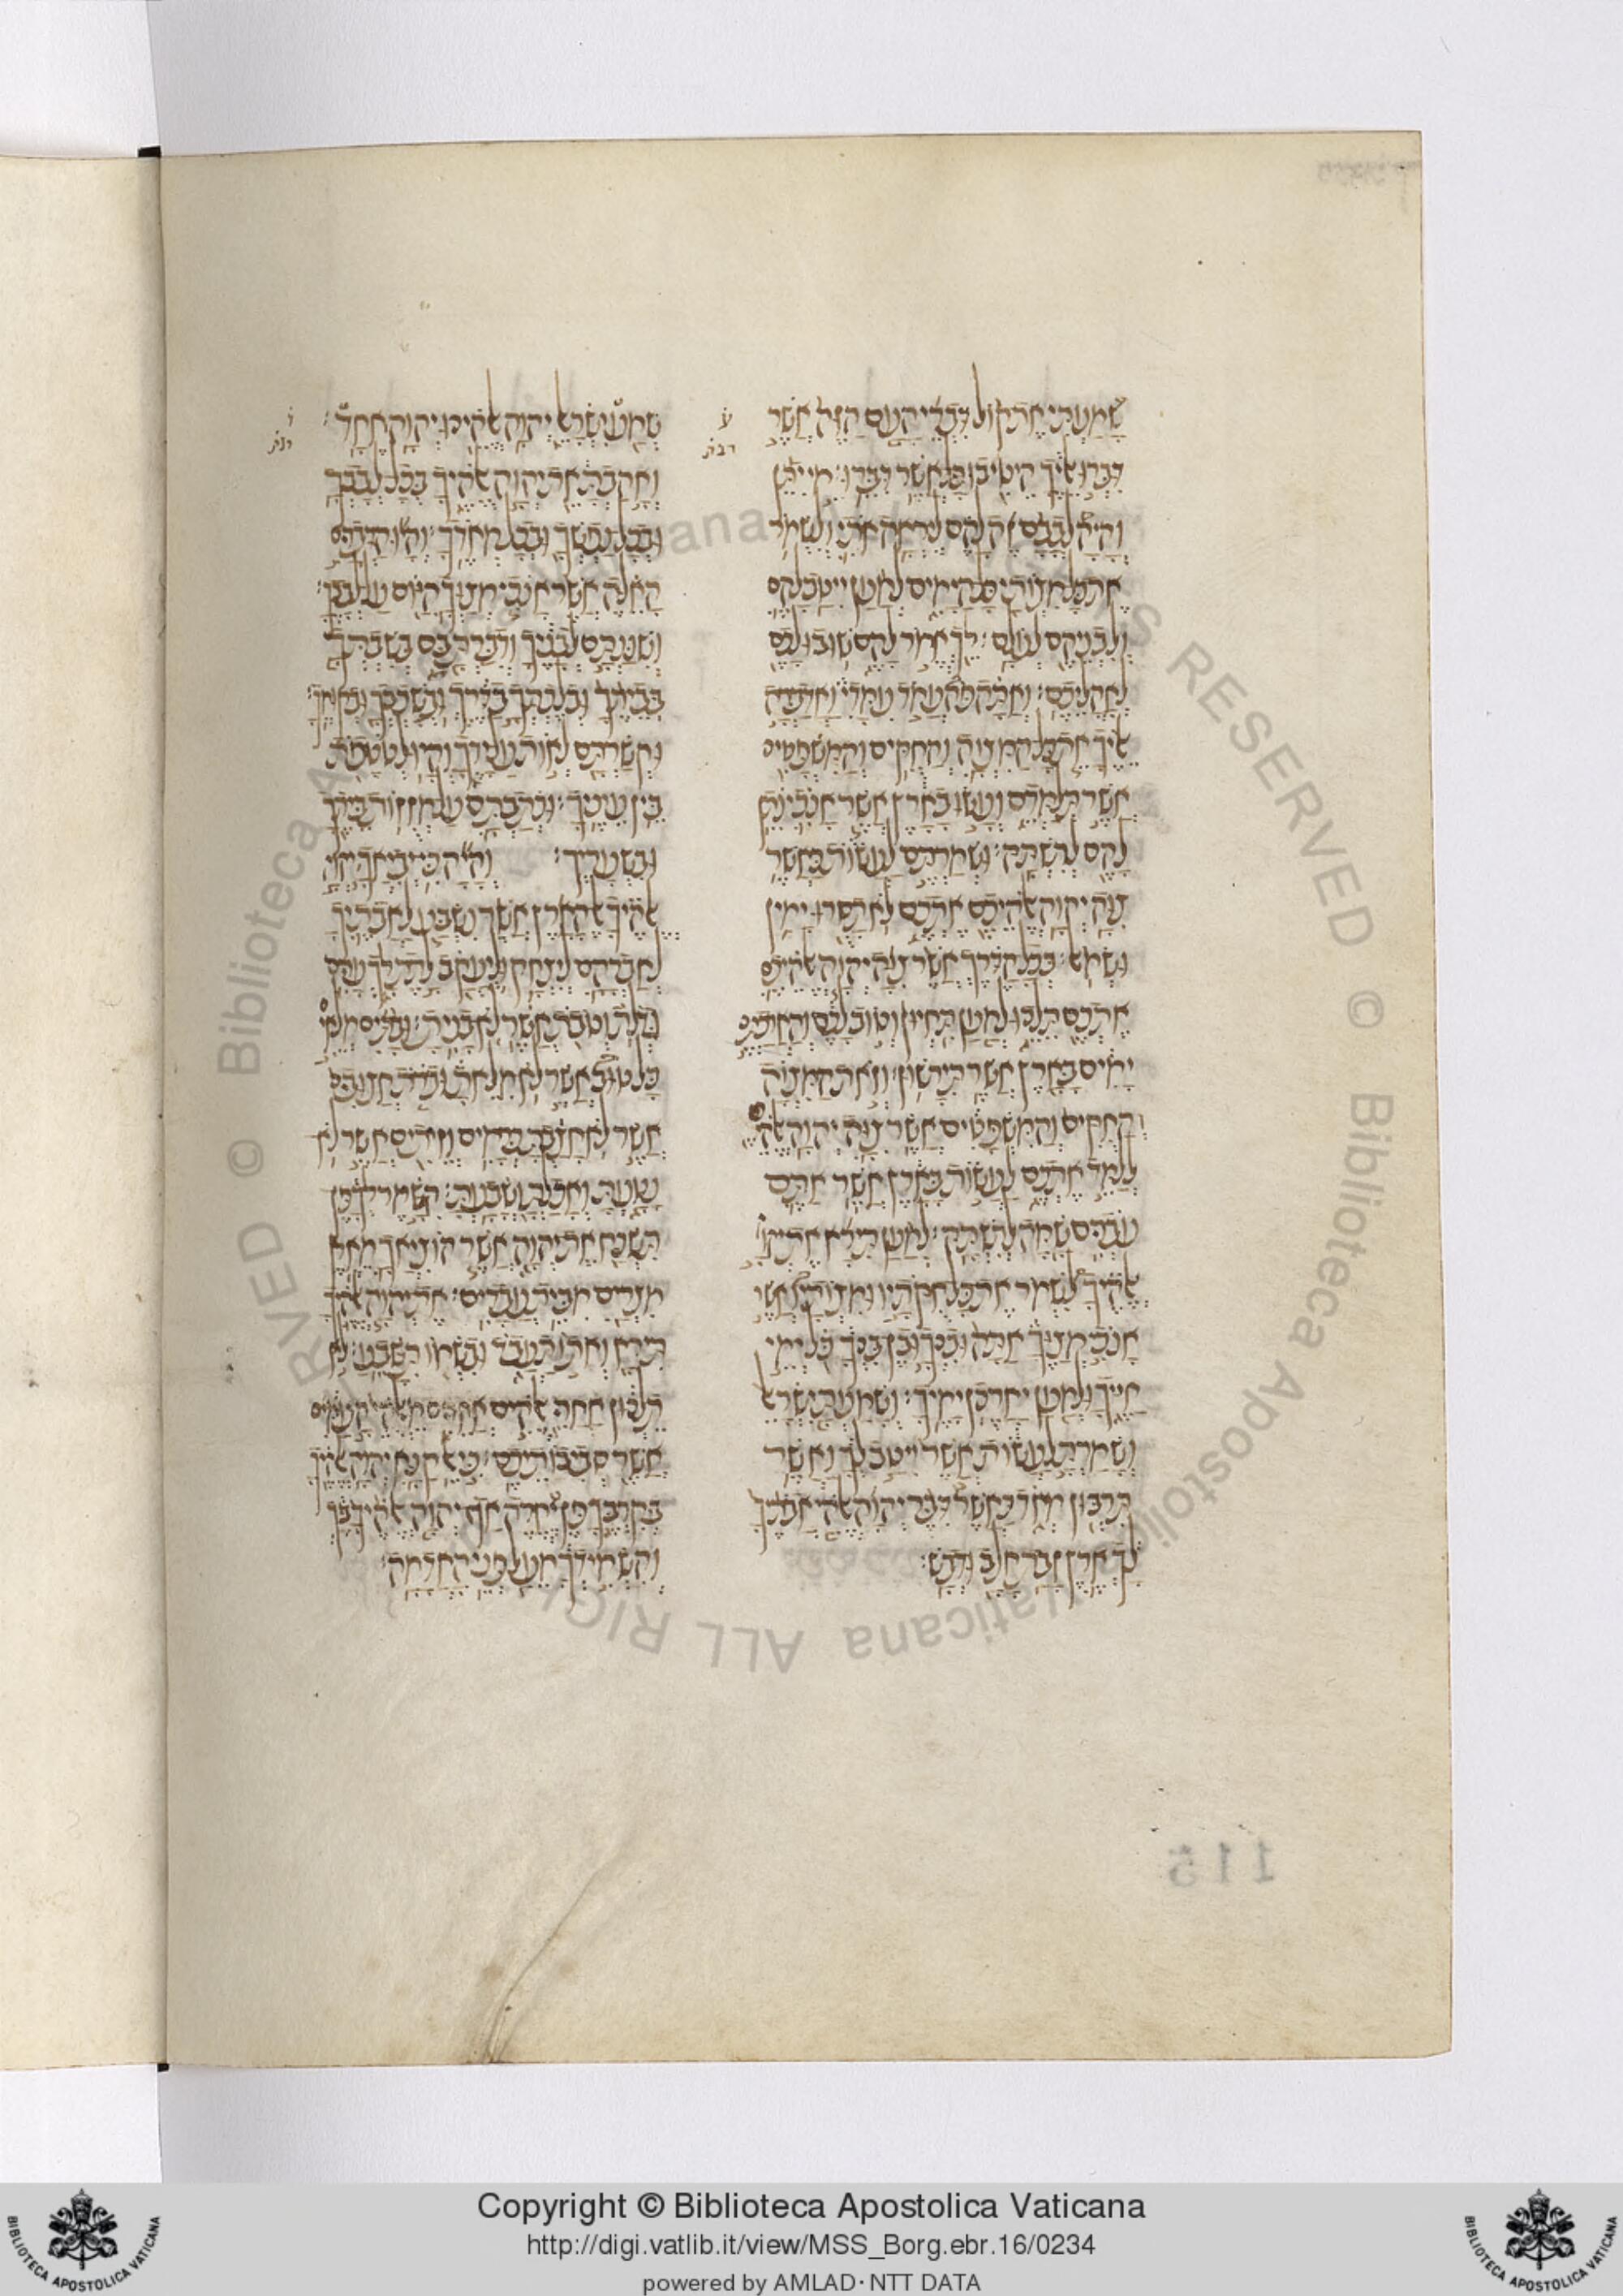 שמעתי את קול דברי העם הזה אשר
דברו אליך היטיבו כל אשר דברו: מי יתן
והיה לבבם זה להם ליראה אתי ולשמר
את כל מצותי כל הימים למען ייטב להם
ולבניהם לעלם: לך אמר להם שובו לכם
לאהליכם: ואתה פה עמד עמדי ואדברה
אליך את כל המצוה והחקים והמשפטים
אשר תלמדם ועשו בארץ אשר אנכי נתן
להם לרשתה: ושמרתם לעשות כאשר
צוה יהוה אלהיכם אתכם לא תסרו ימין
ושמאל: בכל הדרך אשר צוה יהוה אלהיכם
אתכם תלכו למען תחיון וטוב לכם והארכתם
ימים בארץ אשר תירשון: וזאת המצוה
החקים והמשפטים אשר צוה יהוה
ללמד אתכם לעשות בארץ אשר אתם
עברים שמה לרשתה: למען תירא את
אלהיך לשמר את כל חקתיו ומצותיו אשר
אנכי מצוך אתה ובנך ובן בנך כל ימי
חייך ולמען יארכן ימיך: ושמעת ישראל
ושמרת לעשות אשר ייטב לך ואשר
תרבון מאד כאשר דבר יהוה אלהי אבתיך
לך ארץ זבת חלב ודבש:
שמע ישראל יהוה אלהינו יהוה אחד:
ואהבת את יהוה אלהיך בכל לבבך
ובכל נפשך ובכל מאדך: והיו הדברים
האלה אשר אנכי מצוך היום על לבבך:
ושננתם לבניך ודברת בם בשבתך
בביתך ובלכתך בדרך ובשכבך ובקומך:
וקשרתם לאות על ידך והיו לטטפת
בין עיניך: וכתבתם על מזוזות ביתך
ובשעריך: והיה כי יביאך יהוה
אלהיך אל הארץ אשר נשבע לאבתיך
לאברהם ליצחק וליעקב לתת לך ערים
גדלת וטבת אשר לא בנית: ובתים מלאי
כל טוב אשר לא מלאת ובורת חצובים
אשר לא חצבת כרמים וזיתים אשר לא
נטעת ואכלת ושבעת: השמר לך פן
תשכח את יהוה אשר הוציאך מארץ
מצרים מבית עבדים: את יהוה אלהיך
תירא ואתו תעבד ובשמו תשבע: לא
תלכון אחרי אלהים אחרים מאלהי העמים
אשר סביבותיכם: כי אל קנא יהוה אלהיך
בקרבך פן יחרה אף יהוה אלהיך בך
והשמידך מעל פני האדמה:
115
Copyright © Biblioteca Apostolica Vaticana
http://digi.vatlib.it/view/MSS_Borg.ebr.16/0234
powered by AMLAD·NTT DATA
BIBLIOTECA APOSTOLICA VATICANA
BIBLIOTECA APOSTOLICA VATICANA